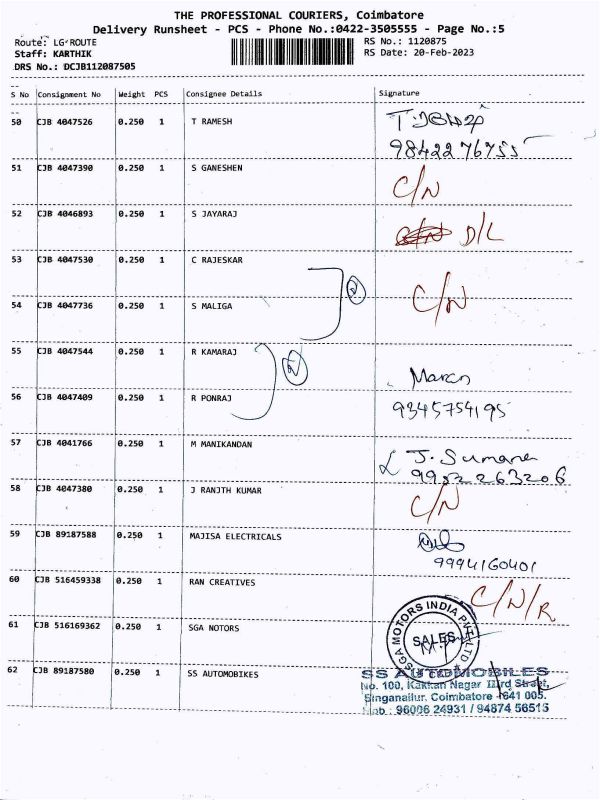 THE PROFESSIONAL COURIERS, Coimbatore
Delivery Runsheet - PCS - Phone No.:0422-3505555 - Page No.:5
Route: LG-ROUTE
RS No.: 1120875
Staff: KARTHIK
RS Date: 20-Feb-2023
DRS No.: DCJB112087505
S No Consignment No Weight PCS Consignee Details Signature
50 CJB 4047526 0.250 1 T RAMESH
9842276755
51 CJB 4047390 0.250 1 S GANESHEN C/N
52 CJB 4046893 0.250 1 S JAYARAJ D/L
53 CJB 4047530 0.250 1 C RAJESKAR C/N
54 CJB 4047736 0.250 1 S MALIGA
55 CJB 4047544 0.250 1 R KAMARAJ
56 CJB 4047409 0.250 1 R PONRAJ 9345754195
57 CJB 4041766 0.250 1 M MANIKANDAN J. Sumana
9952263206
58 CJB 4047380 0.250 1 J RANJTH KUMAR C/N
59 CJB 89187588 0.250 1 MAJISA ELECTRICALS
9994160401
60 CJB 516459338 0.250 1 RAN CREATIVES C/N/R
61 CJB 516169362 0.250 1 SGA NOTORS
SGA MOTORS INDIA PVT LTD
SALES
62 CJB 89187580 0.250 1 SS AUTOMOBIKES
SS AUTOMOBILES
No. 100, Kakkan Nagar IIIrd Street,
Singanallur, Coimbatore - 641 005.
Mob : 96006 24931 / 94874 56515